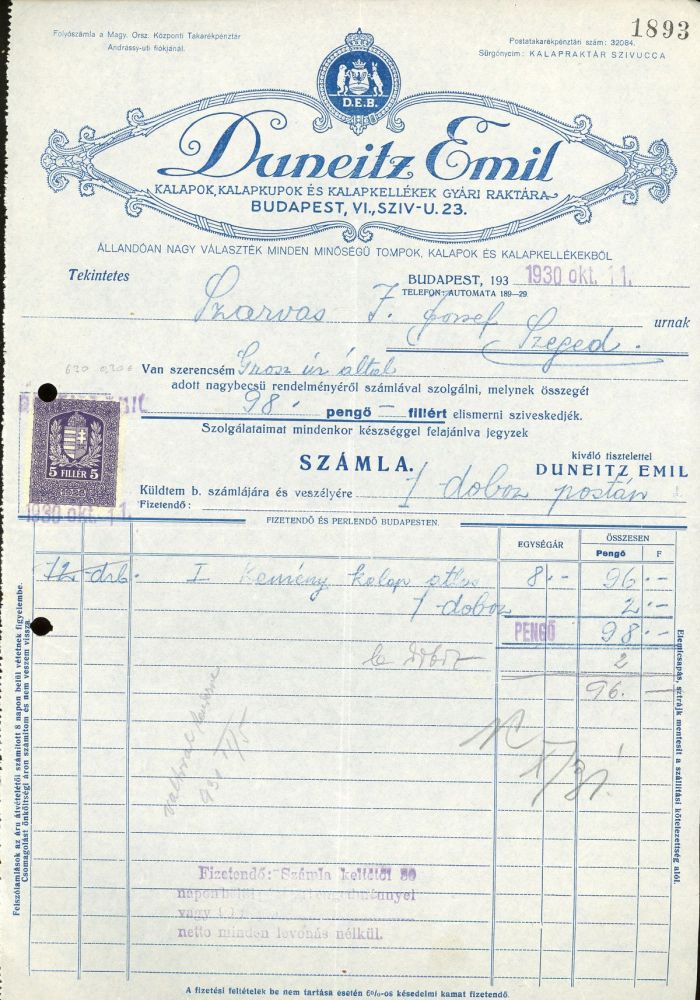 1893
Folyószámla a Magy. Orsz. Központi Takarékpénztár
Andrássy-uti fiókjánál.
Postatakarékpénztári szám: 32084.
Sürgönycim: KALAPRAKTÁR SZIVUCCA
D.E.B.
Duneitz Emil
KALAPOK, KALAPKUPOK ÉS KALAPKELLÉKEK GYÁRI RAKTÁRA
BUDAPEST, VI., SZIV-U. 23.
ÁLLANDÓAN NAGY VÁLASZTÉK MINDEN MINŐSÉGŰ TOMPOK, KALAPOK ÉS KALAPKELLÉKEKBŐL
Tekintetes
BUDAPEST, 193 1930 okt. 11.
TELEFON: AUTOMATA 189-29
Szarvas F. József urnak
Szeged.
Van szerencsém Grosz úr által
adott nagybecsü rendelményéről számlával szolgálni, melynek összegét
98.- pengő — fillért elismerni sziveskedjék.
Szolgálataimat mindenkor készséggel felajánlva jegyzek
kiváló tisztelettel
SZÁMLA. DUNEITZ EMIL
5 FILLÉR 5
Küldtem b. számlájára és veszélyére 1 doboz postán
Fizetendő:
1930 okt. 11.
FIZETENDŐ ÉS PERLENDŐ BUDAPESTEN.
EGYSÉGÁR ÖSSZESEN
Pengő F
12 drb. I Kemény kalap 8.- 96.-
1 doboz 2.-
PENGŐ 98.-
2
96.-
Felszólamlások az áru átvételétől számított 8 napon belül vétetnek figyelembe.
Csomagolást önköltségi áron számitom és nem veszem vissza.
Elemicsapás, sztrájk mentesit a szállitási kötelezettség alól.
Fizetendő: Számla keltétől 30
napon belül engedménnyel
vagy
netto minden levonás nélkül.
A fizetési feltételek be nem tartása esetén 6%-os késedelmi kamat fizetendő.